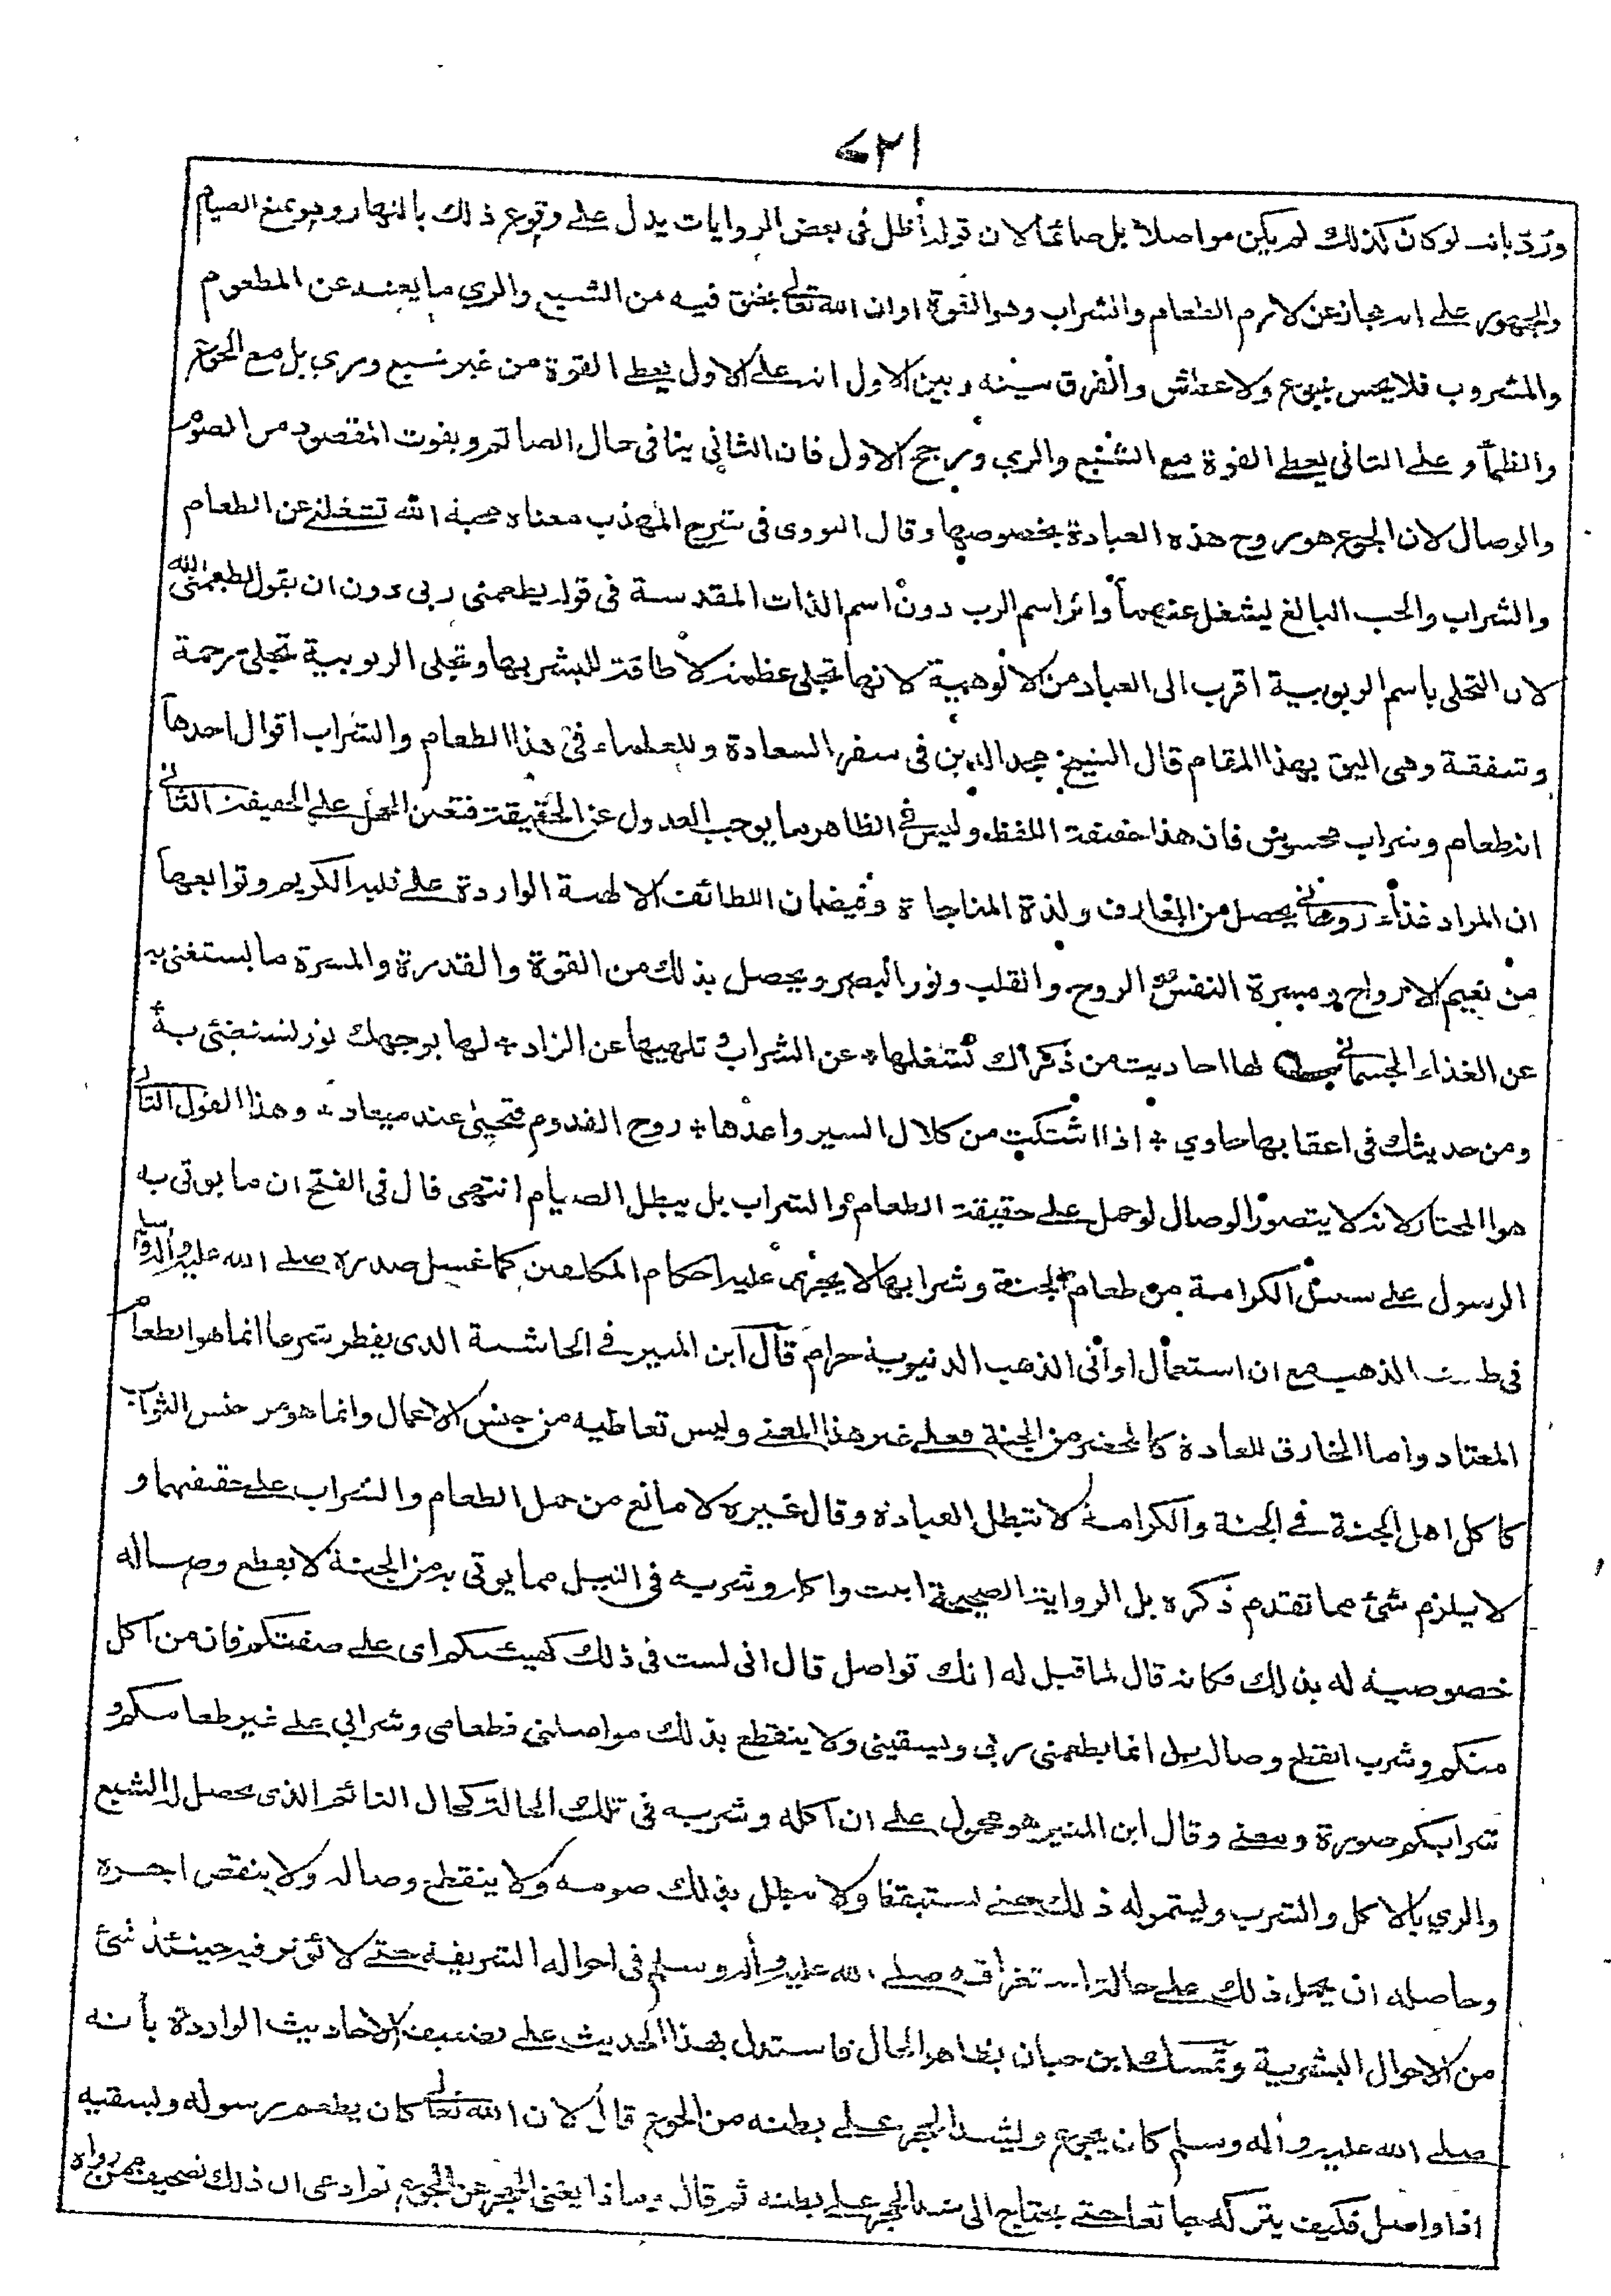 ٧٢١
ورد بانه لو كان كذلك لم يكن مواصلا بل صائما لان قوله أظل فى بعض الروايات يدل على وقوع ذلك بالنهار وهو يمنع الصيام
والجمهور على انه مجاز عن لازم الطعام والشراب وهو القوة او ان الله تعالى يخلق فيه من الشبع والري ما يغنيه عن المطعوم
والمشروب فلا يحس بجوع ولا عطش والفرق بينه وبين الاول انه على الاول يعطى القوة من غير شبع وري بل مع الجوع
والظمأ وعلى الثانى يعطى القوة مع الشبع والري ورجح الاول فان الثانى ينافى حال الصائم ويفوت المقصود من الصوم
والوصال لان الجوع هو روح هذه العبادة بخصوصها وقال النووى فى شرح المهذب معناه محبة الله تشغلنى عن الطعام
والشراب والحب البالغ يشغل عنهما واثر اسم الرب دون اسم الذات المقدسة فى قوله يطعمنى ربى دون ان يقول يطعمنى الله
لان التجلى باسم الربوبية اقرب الى العباد من الالوهية لانها تجلى عظمة لا طاقة للبشر بها وتجلى الربوبية تجلى رحمة
وشفقة وهى اليق بهذا المقام قال الشيخ مجد الدين فى سفر السعادة وللعلماء فى هذا الطعام والشراب اقوال احدها
انه طعام وشراب محسوس فان هذا حقيقة اللفظ وليس فى الظاهر ما يوجب العدول عن الحقيقة فتعين الحمل على الحقيقة الثانى
ان المراد غذاء روحانى يحصل من المعارف ولذة المناجاة وفيضان اللطائف الالهية الواردة على قلبه الكريم وتوابعها
من نعيم الارواح ومسرة النفس و الروح والقلب ونور البصر ويحصل بذلك من القوة والقدرة والمسرة ما يستغنى به
عن الغذاء الجسمانى لها احاديث من ذكراك تشغلها * عن الشراب و تلهيها عن الزاد * لها بوجهك نور تستضئ به
ومن حديثك فى اعقابها حاوي * اذا اشتكت من كلال السير واعدها * روح القدوم فتحيى عند ميعاد * وهذا القول الثانى
هو المختار لانه لا يتصور الوصال لو حمل على حقيقة الطعام والشراب بل يبطل الصيام انتهى قال فى الفتح ان ما يوتى به
الرسول على سبيل الكرامة من طعام الجنة وشرابها لا يجرى عليه احكام المكلفين كما غسل صدره صلى الله عليه وآله وسلم
فى طست الذهب مع ان استعمال اوانى الذهب الدنيوية حرام قال ابن المنير فى الحاشية الذى يفطر شرعا انما هو الطعام
المعتاد واما الخارق للعادة كالمحضر من الجنة فعلى غير هذا المعنى وليس تعاطيه من جنس الاعمال وانما هو من جنس الثواب
كاكل اهل الجنة فى الجنة والكرامة لا تبطل العبادة وقال غيره لا مانع من حمل الطعام والشراب على حقيقتهما و
لا يلزم شئ مما تقدم ذكره بل الرواية الصحيحة ابيت واكله وشربه فى الليل مما يوتى به من الجنة لا يقطع وصاله
خصوصية له بذلك فكانه قال لما قيل له انك تواصل قال انى لست فى ذلك كهيئتكم اى على صفتكم فان من اكل
منكم وشرب انقطع وصاله بل انما يطعمنى ربي ويسقينى ولا ينقطع بذلك مواصلتى فطعامى وشرابي على غير طعامكم و
شرابكم صورة ومعنى وقال ابن المنير هو محمول على ان آكله وشربه فى تلك الحالة كحال النائم الذى يحصل له الشبع
والري بالاكل والشرب وليستمر له ذلك حتى يستيقظ ولا يبطل بذلك صومه ولا ينقطع وصاله ولا ينقص اجره
وحاصله ان يحمل ذلك على حالة استغراقه صلى الله عليه وآله وسلم فى احواله الشريفة حتى لا يوثر فيه حينئذ شئ
من الاحوال البشرية وتمسك ابن حبان بظاهر الحال فاستدل بهذا الحديث على تضعيف الاحاديث الواردة بأنه
صلى الله عليه وأله وسلم كان يجوع ويشد الحجر على بطنه من الجوع قال لان الله تعالى كان يطعم رسوله ويسقيه
اذا واصل فكيف يتركه جائعا حتى يحتاج الى شد الحجر على بطنه ثم قال وماذا يغنى الحجر عن الجوع ثم ادعى ان ذلك تصحيف ممن رواه